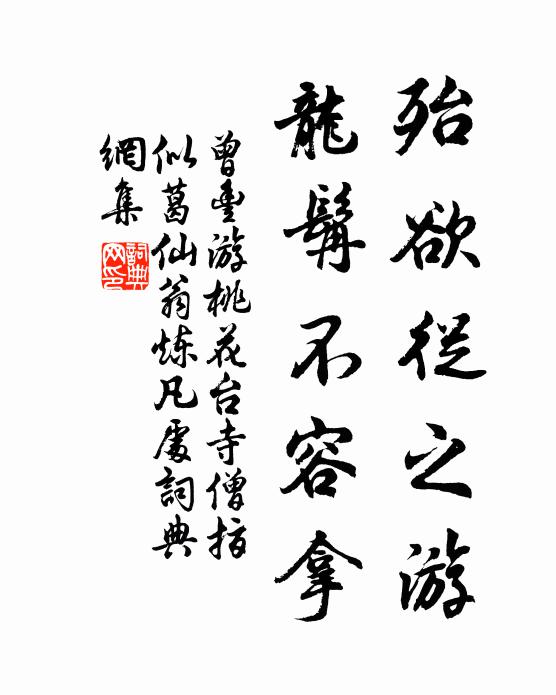 殆欲從之游
龍髯不容拿
曾豐游桃花台寺僧指
似葛仙翁炼凡處詞典
網集
詞典
网印